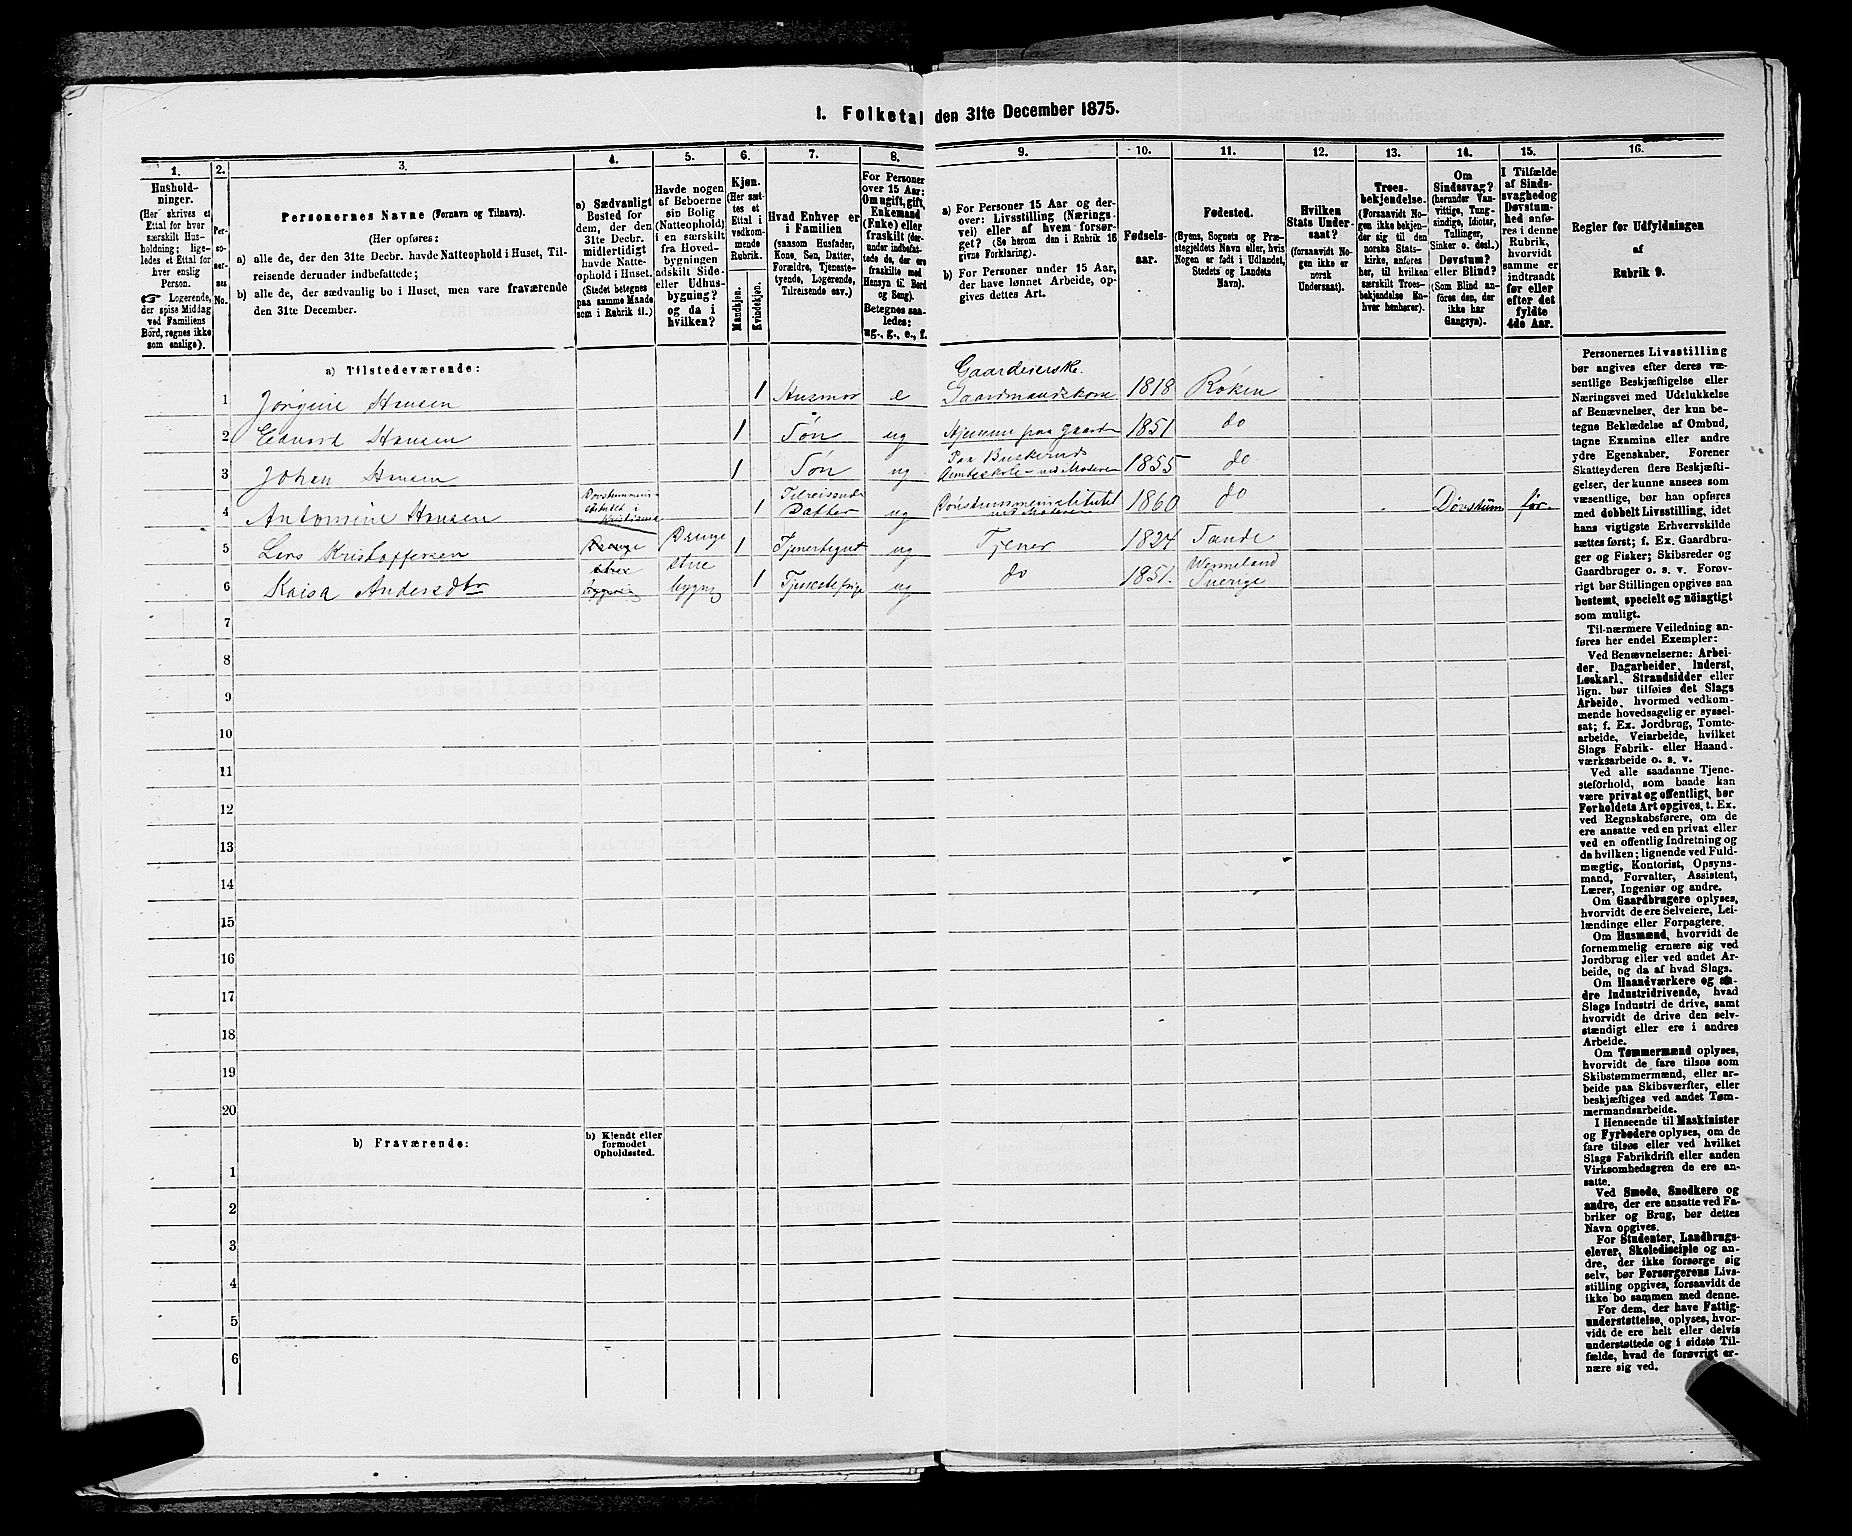 I. Folketal den 31te December 1875.
1. 2. 3. 4. 5. 6. 7. 8. 9. 10. 11. 12. 13. 14. 15. 16.
Hushold-
ninger.
(Her skrives et
Ettal for hver
særskilt Hus-
holdning; lige-
ledes et Ettal for
hver enslig
Person.
☞ Logerende,
der spise Middag
ved Familiens
Bord, regnes ikke
som enslige).
Per-
so-
ner-
nes
No.
Personernes Navne (Fornavn og Tilnavn).
(Her opføres:
a) alle de, der den 31te Decbr. havde Natteophold i Huset, Til-
reisende derunder indbefattede;
b) alle de, der sædvanlig bo i Huset, men vare fraværende
den 31te December.
a) Sædvanligt
Bosted for
dem, der den
31te Decbr.
midlertidigt
havde Natte-
ophold i Huset.
(Stedet betegnes
paa samme Maade
som i Rubrik 11.)
Havde nogen
af Beboerne
sin Bolig
(Natteophold)
i en særskilt
fra Hoved-
bygningen
adskilt Side-
eller Udhus-
bygning?
og da i
hvilken?
Kjøn.
(Her sæt-
tes et
Ettal i
vedkom-
mende
Rubrik.
Mandkjøn.
Kvindekjøn.
Hvad Enhver er
i Familien
(saasom Husfader,
Kone, Søn, Datter,
Forældre, Tjeneste-
tyende, Logerende,
Tilreisende osv.)
For Personer
over 15 Aar:
Om ugift, gift,
Enkemand
(Enke) eller
fraskilt (der-
under indbefat-
tede de, der ere
fraskilte med
Hensyn til Bord
og Seng).
Betegnes saa-
ledes:
ug., g., e., f.
a) For Personer 15 Aar og der-
over: Livsstilling (Nærings-
vei) eller af hvem forsør-
get? (Se herom den i Rubrik 16
givne Forklaring).
b) For Personer under 15 Aar,
der have lønnet Arbeide, op-
gives dettes Art.
Fødsels-
aar.
Fødested.
(Byens, Sognets og Præ-
stegjeldets Navn eller, hvis
Nogen er født i Udlandet,
Stedets og Landets
Navn).
Hvilken
Stats Under-
saat?
(forsaavidt No-
gen ikke er
norsk
Undersaat).
Troes-
bekjendelse.
(Forsaavidt No-
gen ikke bekjen-
der sig til den
norske Stats-
kirke, anføres
her, til hvilken
særskilt Troes-
bekjendelse En-
hver henhører).
Om
Sindssvag?
(herunder Van-
vittige, Tung-
sindige, Idioter,
Tullinger,
Sinker o. desl.)
Døvstum?
eller Blind?
(Som Blind an-
føres den, der
ikke har
Gangsyn).
I Tilfælde
af Sinds-
svaghed og
Døvstum-
hed anfø-
res i denne
Rubrik,
hvorvidt
samme er
indtraadt
før eller
efter det
fyldte
4de Aar.
Regler for Udfyldningen
af
Rubrik 9.
a) Tilstedeværende:
Gaardeierske.
1 Jørgine Hansen 1 Husmor e Gaardmandskone 1818 Røken
2 Edvard Hansen 1 Søn ug Hjemme paa Gaarden 1851 do
3 Johan Hansen 1 Søn ug Paa Buskeruds
Amtsskole ved Moderen 1855 do
4 Antomine Hansen Døvstummein-
stitutet i
Kristiania 1 Tilreisende
Datter ug Døvstummeinstitutet
ved Modere 1860 do Døvstum før.
5 Lars Kristoffersen Drenge Drenge 1 Tjenerdegut ug Tjener 1824 Sande
6 Kaisa Andersdtr stue
bygning stue
bygng 1 Tjenestepige ug do 1851. Wermeland
Sverige
7
8
9
10
11
12
13
14
15
16
17
18
19
20
b) Fraværende:
b) Kjendt eller
formodet
Opholdssted.
1
2
3
4
5
6
Personernes Livsstilling
bør angives efter deres væ-
sentlige Beskjæftigelse eller
Næringsvei med Udelukkelse
af Benævnelser, der kun be-
tegne Beklædelse af Ombud,
tagne Examina eller andre
ydre Egenskaber. Forener
Skatteyderen flere Beskjæfti-
gelser, der kunne ansees som
væsentlige, bør han opføres
med dobbelt Livsstilling, idet
hans vigtigste Erhvervskilde
sættes først; f. Ex. Gaardbru-
ger og Fisker; Skibsreder og
Gaardbruger o. s. v. Forøv-
rigt bør Stillingen opgives saa
bestemt, specielt og nöiagtigt
som muligt.
Til nærmere Veiledning an-
føres her endel Exempler:
Ved Benævnelserne: Arbei-
der, Dagarbeider, Inderst,
Løskarl, Strandsidder eller
lign. bør tilføies det Slags
Arbeide, hvormed vedkom-
mende hovedsagelig er syssel-
sat; f. Ex. Jordbrug, Tomte-
arbeide, Veiarbeide, hvilket
Slags Fabrik- eller Haand-
værksarbeide o. s. v.
Ved alle saadanne Tjene-
steforhold, som baade kan
være privat og offentligt, bør
Forholdets Art opgives, t. Ex.
ved Regnskabsførere, om de
ere ansatte ved en privat eller
ved en offentlig Indretning og
da hvilken; lignende ved Fuld-
mægtig, Kontorist, Opsyns-
mand, Forvalter, Assistent,
Lærer, Ingeniør og andre.
Om Gaardbrugere oplyses,
hvorvidt de ere Selveiere, Lei-
lændinge eller Forpagtere.
Om Husmænd, hvorvidt de
fornemmelig ernære sig ved
Jordbrug eller ved andet Ar-
beide, og da af hvad Slags.
Om Haandværkere og an-
dre Industridrivende, hvad
Slags Industri de drive, samt
hvorvidt de drive den selv-
stændigt eller ere i andres
Arbeide.
Om Tømmermænd oplyses,
hvorvidt de fare tilsøs som
Skibstømmermænd, eller ar-
beide paa Skibsværfter, eller
beskjæftiges ved andet Tøm-
mermandsarbeide.
I Henseende til Maskinister
og Fyrbødere oplyses, om de
fare tilsøs eller ved hvilket
Slags Fabrikdrift eller anden
Virksomhedsgren de ere an-
satte.
Ved Smede, Snedkere og
andre, der ere ansatte ved Fa-
briker og Brug, bør dettes
Navn opgives.
For Studenter, Landbrugs-
elever, Skoledisciple og an-
dre, der ikke forsørge sig
selv, bør Forsørgerens Livs-
stilling opgives, forsaavidt de
ikke bo sammen med denne.
For dem, der have Fattig-
understøttelse, oplyses, hvor-
vidt de ere helt eller delvis
understøttede og i sidste Til-
fælde, hvad de forøvrigt er-
nære sig ved.